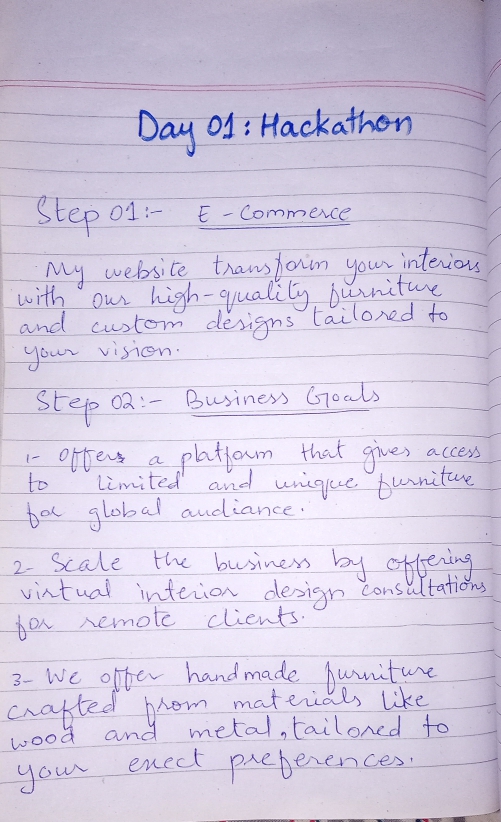 Day 01: Hackathon
Step 01:- E-Commerce
My website transform your interiors
with our high-quality furniture
and custom designs tailored to
your vision.
Step 02:- Business Goals
1- Offers a platform that gives access
to limited and unique furniture
for global audiance.
2- Scale the business by offering
virtual interior design consultations
for remote clients.
3- We offer handmade furniture
crafted from materials like
wood and metal, tailored to
your exect preferences.